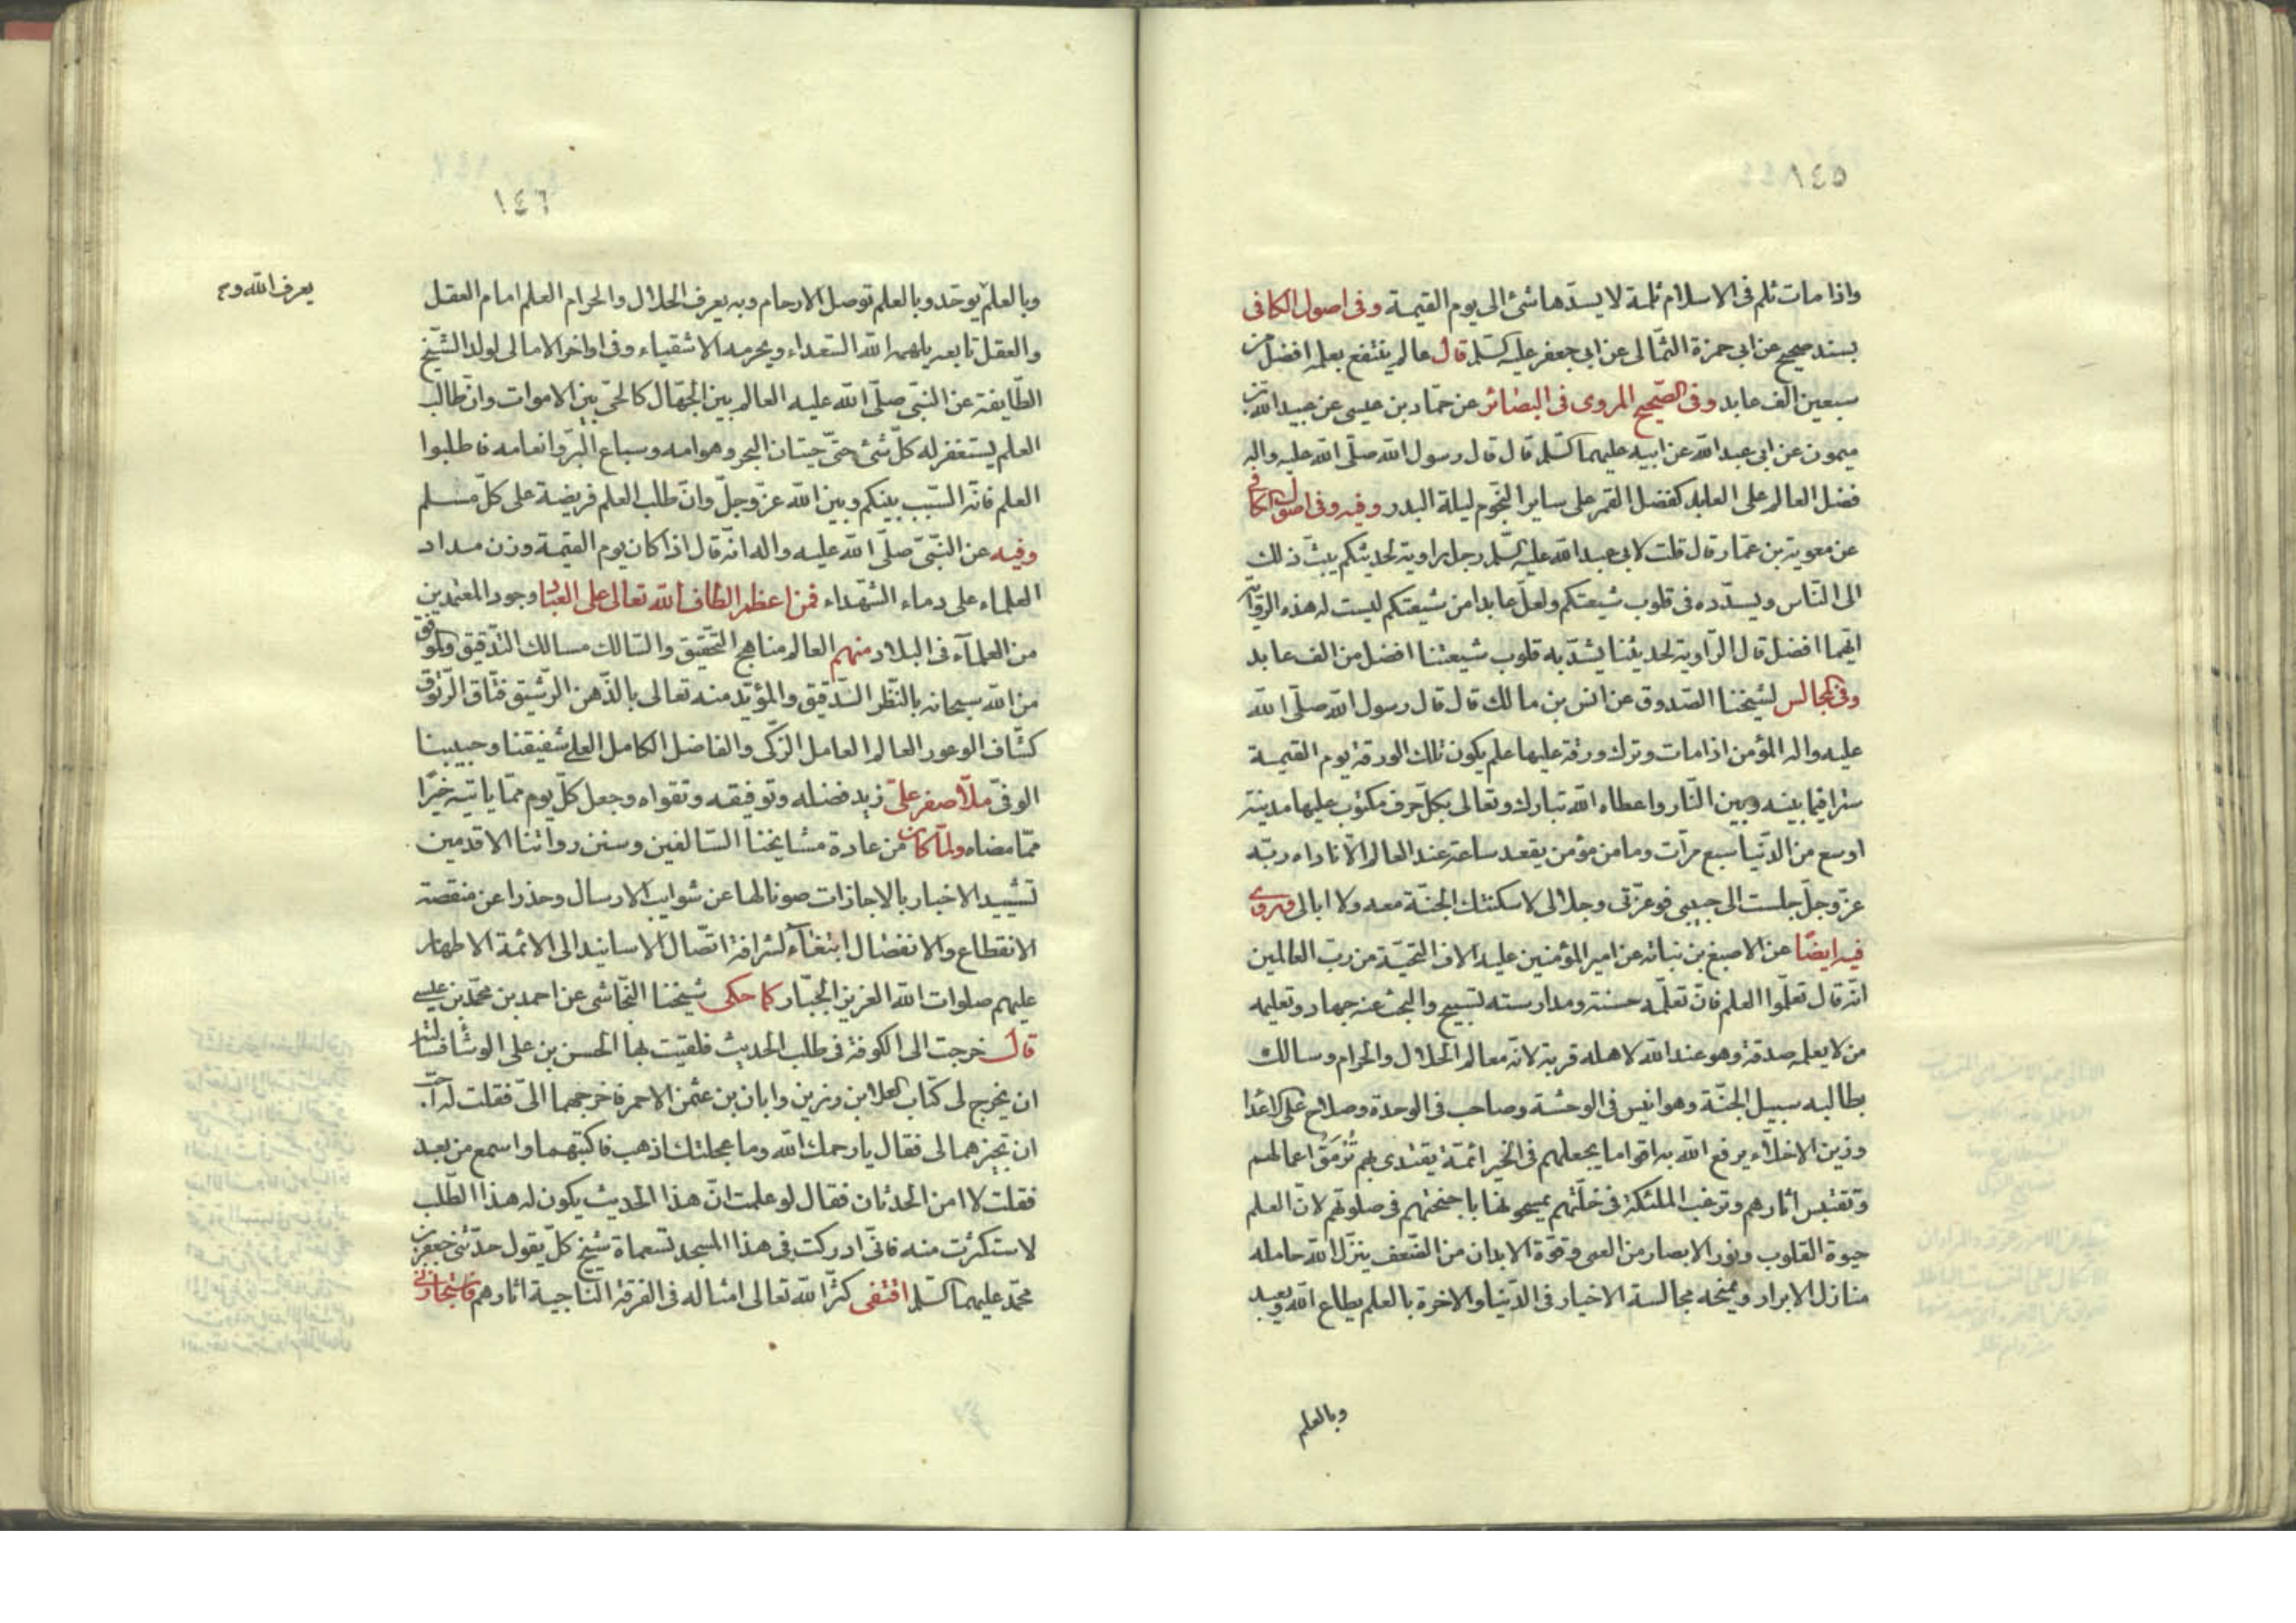 ١٤٥
واذا مات ثلم فى الاسلام ثلمة لا يسدّها شئ الى يوم القيمة وفى اصول الكافى
بسند صحيح عن ابى حمزة الثمّالى عن ابى جعفر عليه السّلم قال عالم ينتفع بعلمه افضل من
سبعين الف عابد وفى الصّحيح المروى فى البصائر عن حمّاد بن عيسى عن عبد الله بن
ميمون عن ابى عبد الله عن ابيه عليهما السّلم قال قال رسول الله صلّى الله عليه واله
فضل العالم على العابد كفضل القمر على ساير النّجوم ليلة البدر وفيه وفى اصول الكافى
عن معوية بن عمّار قال قلت لابى عبد الله عليه السّلم رجل راوية لحديثكم يبثّ ذلك
الى النّاس ويسدّده فى قلوب شيعتكم ولعلّ عابدا من شيعتكم ليست له هذه الرّواية
ايّهما افضل قال الرّاوية لحديثنا يشدّ به قلوب شيعتنا افضل من الف عابد
وفى المجالس لشيخنا الصّدوق عن انس بن مالك قال قال رسول الله صلّى الله
عليه واله المؤمن اذا مات وترك ورقة عليها علم يكون تلك الورقة يوم القيمة
سترا فيما بينه وبين النّار واعطاه الله تبارك وتعالى بكلّ حرف مكتوب عليها مدينة
اوسع من الدّنيا سبع مرّات وما من مؤمن يقعد ساعة عند العالم الّا ناداه ربّه
عزّ وجلّ جلست الى حبيبى فوعزّتى وجلالى لاسكنتك الجنّة معه ولا ابالى وروى
فيه ايضًا عن الاصبغ بن نباته عن امير المؤمنين عليه الاف التّحيّة من ربّ العالمين
انّه قال تعلّموا العلم فانّ تعلّمه حسنة ومدارسته تسبيح والبحث عنه جهاد وتعليمه
من لا يعلمه صدقة وهو عند الله لاهله قربة لانّه معالم الحلال والحرام وسالك
بطالبه سبيل الجنّة وهو انيس فى الوحشة وصاحب فى الوحدة وصلاح على الاعداء
وزين الاخلّاء يرفع الله به اقواما يجعلهم فى الخير ائمّة يقتدى بهم تُرْمَقُ اعمالهم
وتقتبس اثارهم وترغب الملئكة فى خلّتهم يمسحونها باجنحتهم فى صلوتهم لانّ العلم
حيوة القلوب ونور الابصار من العمى وقوّة الابدان من الضّعف ينزّل الله حامله
منازل الابرار ويمنحه مجالسة الاخيار فى الدّنيا والاخرة بالعلم يطاع الله ويعبد
وبالعلم
١٤٦
وبالعلم يوحّد وبالعلم توصل الارحام وبه يعرف الحلال والحرام العلم امام العقل
يعرف الله و صح
والعقل تابعه يلهمه الله السّعداء ويحرمه الاشقياء وفى اواخر الامالى لولد الشّيخ
الطّايفة عن النّبى صلّى الله عليه العالم بين الجهّال كالحىّ بين الاموات وانّ طالب
العلم ليستغفر له كلّ شئ حتّى حيتان البحر وهوامه وسباع البرّ وانعامه فاطلبوا
العلم فانّه السّبب بينكم وبين الله عزّ وجلّ وانّ طلب العلم فريضة على كلّ مسلم
وفيه عن النّبىّ صلّى الله عليه واله انّه قال اذا كان يوم القيمة وزن مداد
العلماء على دماء الشّهداء فمن اعظم الطاف الله تعالى على العباد وجود المعتمدين
من العلمآء فى البلاد منهم العالم مناهج التّحقيق والسّالك مسالك التّدقيق والموفّق
من الله سبحانه بالنّظر الدّقيق والمؤيّد منه تعالى بالذّهن الرّشيق فتّاق الرّتوق
كشّاف الوعور العالم العامل الزّكى والفاضل الكامل العلى شفيقنا وحبيبنا
الوفىّ ملّا صفر على زيد فضله وتوفيقه وتقواه وجعل كلّ يوم ممّا ياتيه خيرًا
ممّا مضاه ولمّا كان من عادة مشايخنا السّالفين وسنن رواتنا الاقدمين
تشييد الاخبار بالاجازات صونا لها عن شوايب الارسال وحذرا عن منقصة
الانقطاع والانفصال ابتغآء لشرافة اتّصال الاسانيد الى الائمّة الاطهار
عليهم صلوات الله العزيز الجبّار كما حكى شيخنا النّجاشى عن احمد بن محمّد بن عيسى
قال خرجت الى الكوفة فى طلب الحديث فلقيت بها الحسن بن على الوشّا فسألته
ان يخرج لى كتاب العلا بن رزين وابان بن عثمن الاحمر فاخرجهما الىّ فقلت له احبّ
ان تجيزهما لى فقال يا رحمك الله وما عجلتك اذهب فاكتبهما واسمع من بعد
فقلت لا امن الحدثان فقال لو علمت انّ هذا الحديث يكون له هذا الطّلب
لاستكثرت منه فانّى ادركت فى هذا المسجد تسعمأة شيخ كلّ يقول حدّثنى جعفر بن
محمّد عليهما السّلم اقتفى كثّر الله تعالى امثاله فى الفرقة النّاجية اثارهم فاستجازنى